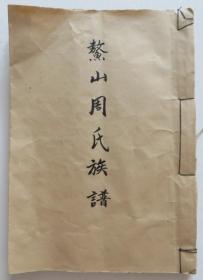 鳌山周氏族譜